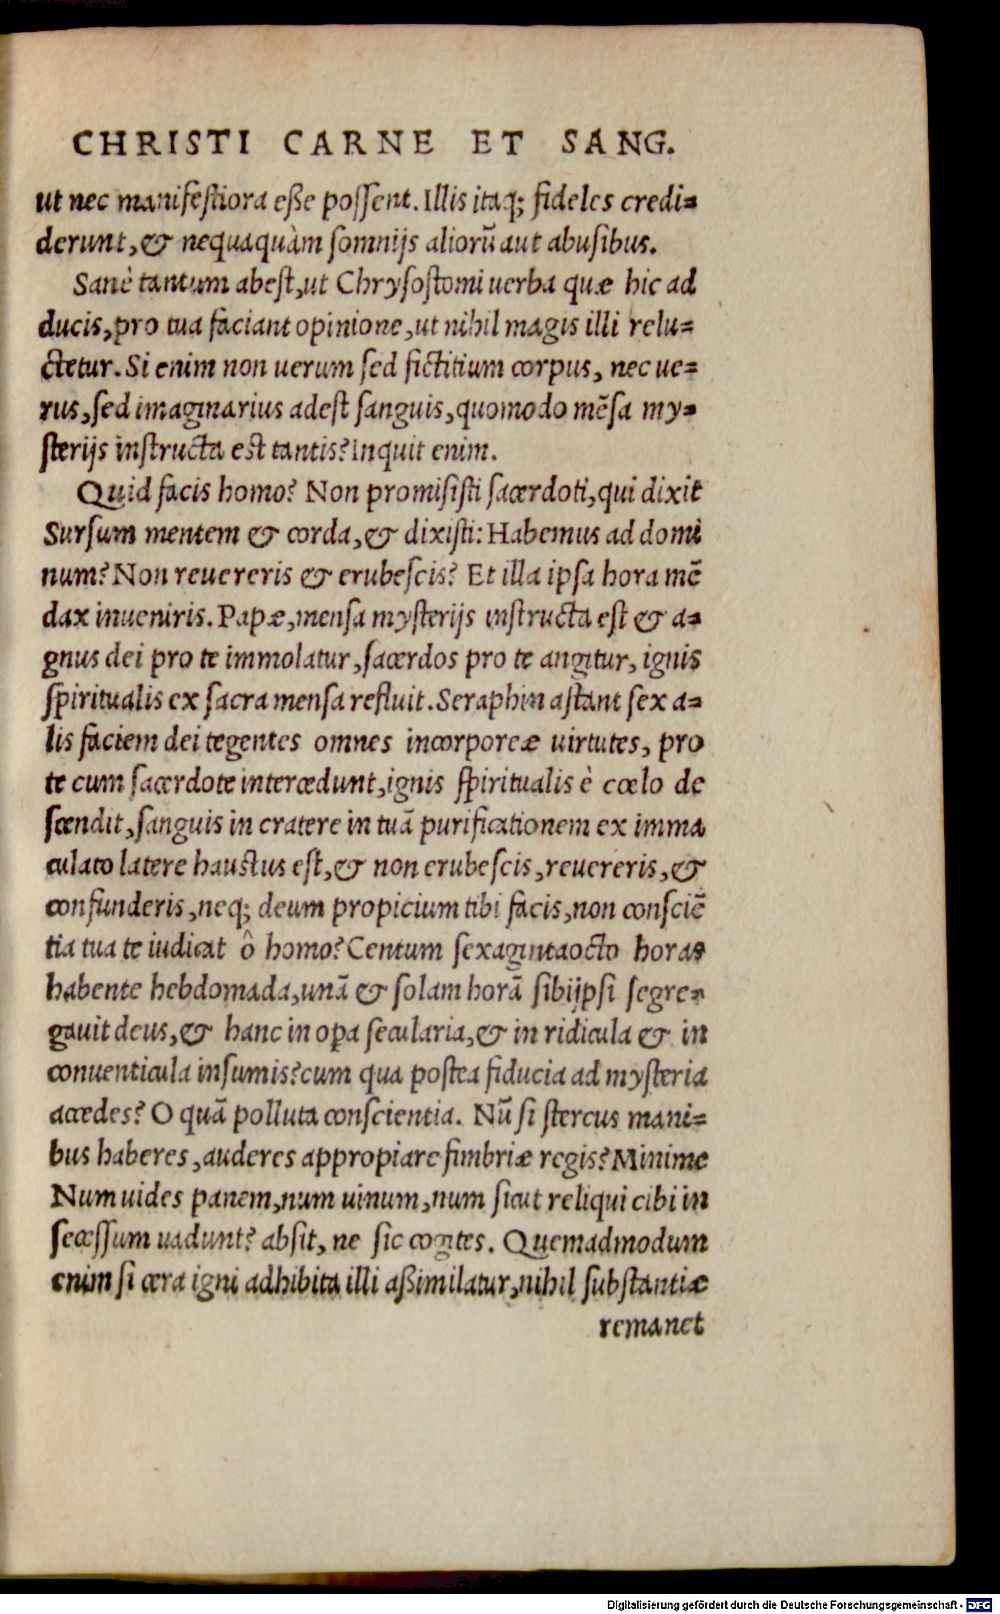 CHRISTI CARNE ET SANG.
ut nec manifestiora eße possent. Illis itaq; fideles credi-
derunt, & nequaquàm somnijs aliorũ aut abusibus.
Sanè tantum abest, ut Chrysostomi uerba quæ hic ad
ducis, pro tua faciant opinione, ut nihil magis illi relu-
ctetur. Si enim non uerum sed fictitium corpus, nec ue-
rus, sed imaginarius adest sanguis, quomodo mẽsa my-
sterijs instructa est tantis? Inquit enim.
Quid facis homo? Non promisisti sacerdoti, qui dixit
Sursum mentem & corda, & dixisti: Habemus ad domi
num? Non reuereris & erubescis? Et illa ipsa hora mẽ
dax inueniris. Papæ, mensa mysterijs instructa est & a-
gnus dei pro te immolatur, sacerdos pro te angitur, ignis
spiritualis ex sacra mensa refluit. Seraphin astant sex a-
lis faciem dei tegentes omnes incorporeæ uirtutes, pro
te cum sacerdote intercedunt, ignis spiritualis è cœlo de
scendit, sanguis in cratere in tuã purificationem ex imma
culato latere haustus est, & non erubescis, reuereris, &
confunderis, neq; deum propicium tibi facis, non consciẽ
tia tua te iudicat ô homo? Centum sexagintaocto horas
habente hebdomada, unã & solam horã sibijpsi segre-
gauit deus, & hanc in opa secularia, & in ridicula & in
conuenticula insumis? cum qua postea fiducia ad mysteria
accedes? O quã polluta conscientia. Nũ si stercus mani-
bus haberes, auderes appropiare fimbriæ regis? Minime
Num uides panem, num uinum, num sicut reliqui cibi in
secessum uadunt? absit, ne sic cogites. Quemadmodum
enim si cera igni adhibita illi aßimilatur, nihil substantiæ
remanet
Digitalisierung gefördert durch die Deutsche Forschungsgemeinschaft - DFG